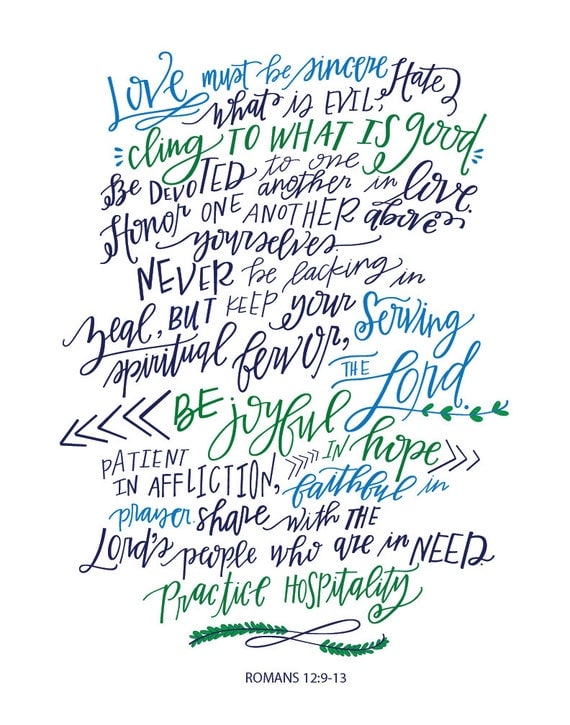 Love must be sincere Hate
what is EVIL;
cling TO WHAT IS good
Be DEVOTED to one another in love.
Honor ONE ANOTHER above
yourselves.
NEVER be lacking in
zeal, BUT KEEP your
spiritual fervor, Serving
THE Lord.
BE joyful
IN hope
PATIENT
IN AFFLICTION, faithful in
prayer. share with THE
Lord's people who are in NEED.
Practice HOSPitality
ROMANS 12:9-13